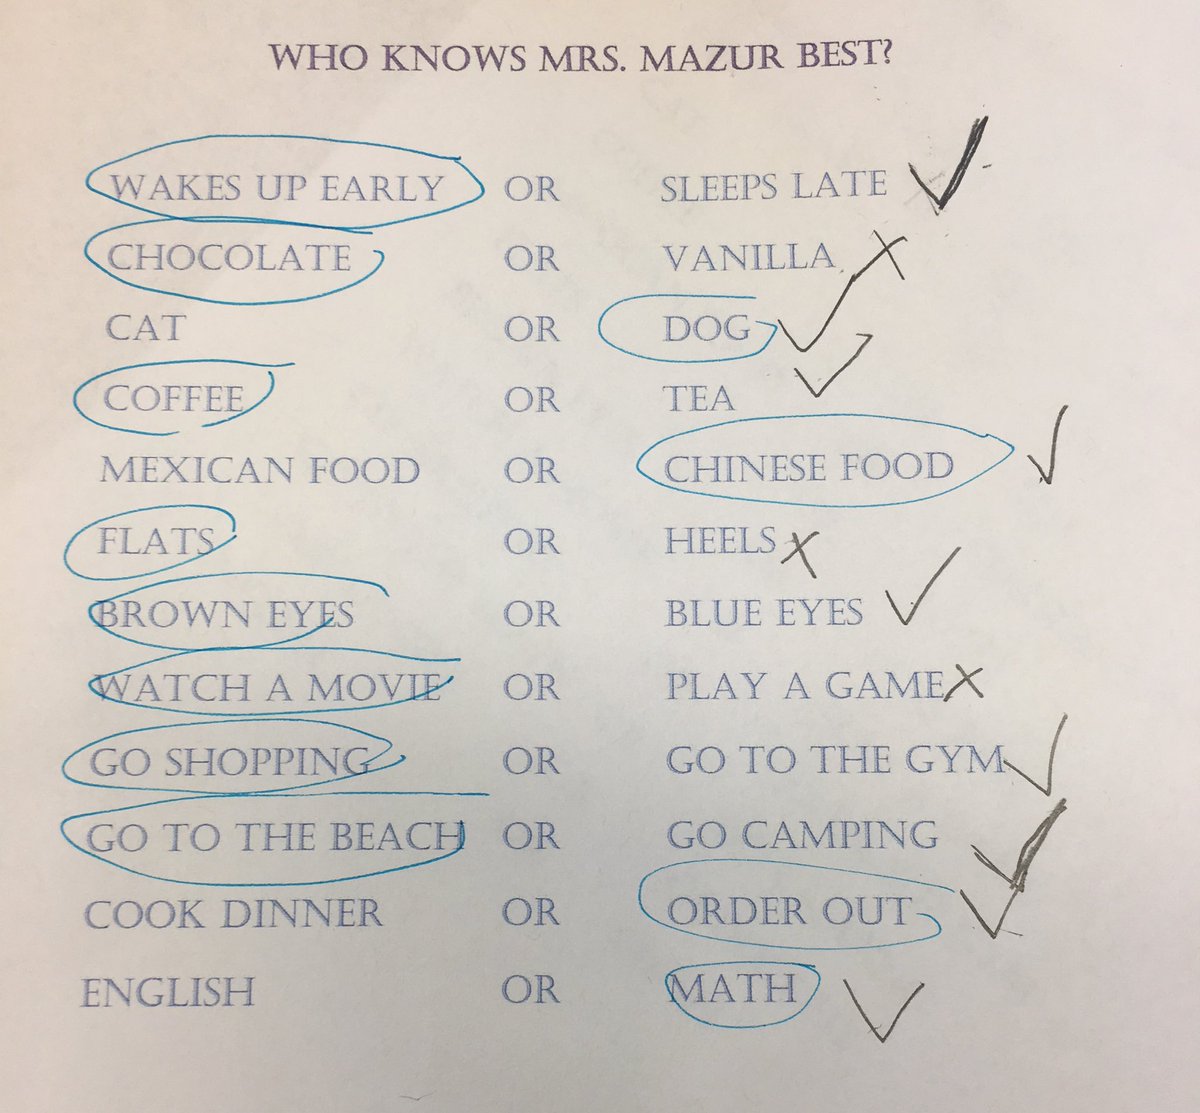 WHO KNOWS MRS. MAZUR BEST?
WAKES UP EARLY OR SLEEPS LATE ✓
CHOCOLATE OR VANILLA ✗
CAT OR DOG ✓
COFFEE OR TEA ✓
MEXICAN FOOD OR CHINESE FOOD ✓
FLATS OR HEELS ✗
BROWN EYES OR BLUE EYES ✓
WATCH A MOVIE OR PLAY A GAME ✗
GO SHOPPING OR GO TO THE GYM ✓
GO TO THE BEACH OR GO CAMPING ✓
COOK DINNER OR ORDER OUT ✓
ENGLISH OR MATH ✓